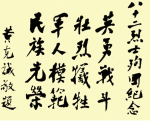 八十二烈士殉国纪念
英勇战斗
壮烈犠牲
军人模範
民族光榮
黄克诚敬题